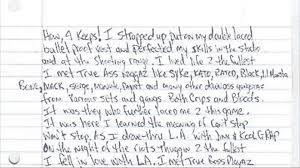 How, 4 Keeps! I strapped up put on my double laced
bullet proof vest and perfected my skills in the studio
and at the shooting range. I lived life 2 the fullest
I met True Ass Niggaz like Syke, Kato, Bass, Black, Lil Monsta
Bone, Mack, Serge, Mondie, Rabbit and many other divisions gangstas
from various sets and gangs. Both Crips and Bloods.
It was they who further laced me 2 this game.
It was here I learned the meaning of Can't Stop
Won't Stop. As I drove-thru L.A. with Jinx & Kool G Rap
On the night of the riots thuggin 2 the fullest
I fell in love with L.A. I met True Boss Playaz